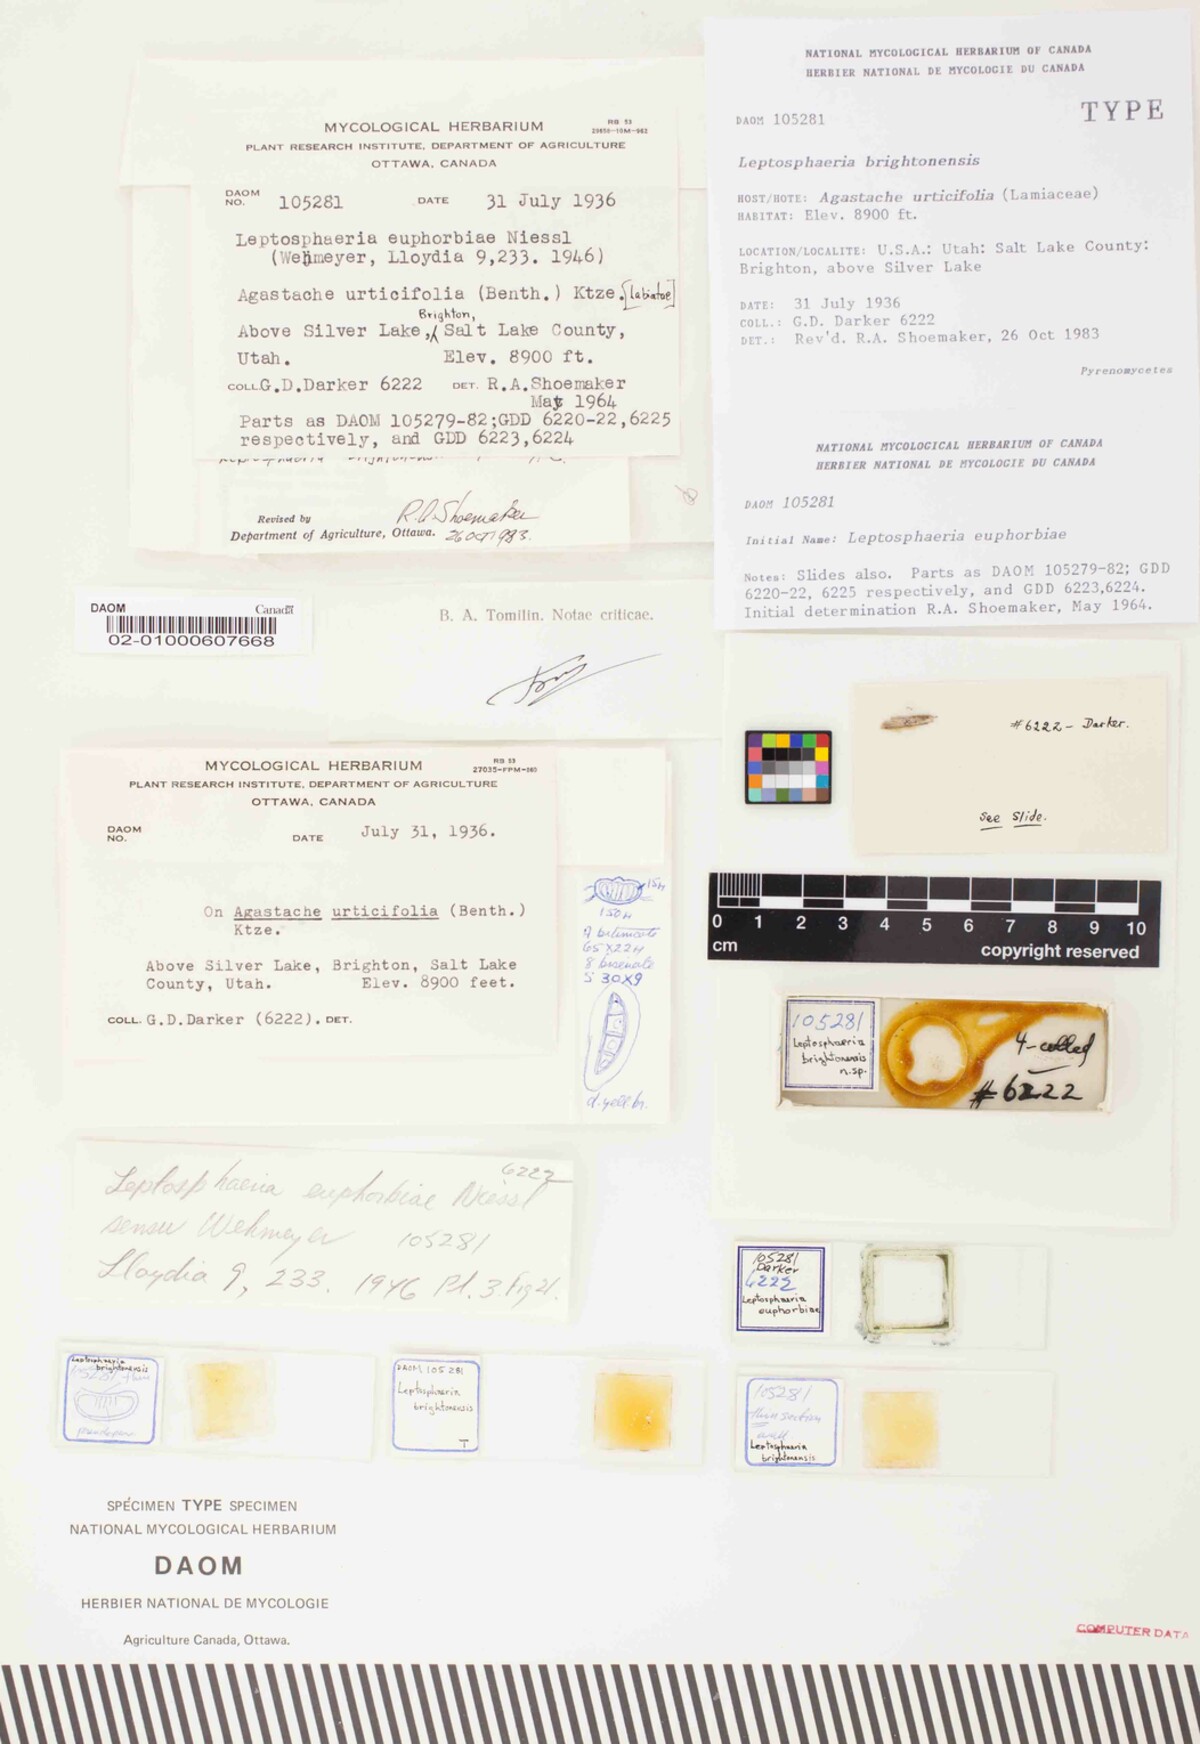 NATIONAL MYCOLOGICAL HERBARIUM OF CANADA
HERBIER NATIONAL DE MYCOLOGIE DU CANADA
TYPE
DAOM 105281
Leptosphaeria brightonensis
HOST/HOTE: Agastache urticifolia (Lamiaceae)
HABITAT: Elev. 8900 ft.
LOCATION/LOCALITE: U.S.A.: Utah: Salt Lake County:
Brighton, above Silver Lake
DATE: 31 July 1936
COLL.: G.D. Darker 6222
DET.: Rev'd. R.A. Shoemaker, 26 Oct 1983
Pyrenomycetes
NATIONAL MYCOLOGICAL HERBARIUM OF CANADA
HERBIER NATIONAL DE MYCOLOGIE DU CANADA
DAOM 105281
Initial Name: Leptosphaeria euphorbiae
Notes: Slides also. Parts as DAOM 105279-82; GDD
6220-22, 6225 respectively, and GDD 6223,6224.
Initial determination R.A. Shoemaker, May 1964.
MYCOLOGICAL HERBARIUM
RB 53
PLANT RESEARCH INSTITUTE, DEPARTMENT OF AGRICULTURE
OTTAWA, CANADA
DAOM NO. 105281 DATE 31 July 1936
Leptosphaeria euphorbiae Niessl
(Wehmeyer, Lloydia 9,233. 1946)
Agastache urticifolia (Benth.) Ktze. [Labiatae]
Brighton,
Above Silver Lake, Salt Lake County,
Utah. Elev. 8900 ft.
COLL. G.D.Darker 6222 DET. R.A.Shoemaker
May 1964
Parts as DAOM 105279-82;GDD 6220-22,6225
respectively, and GDD 6223,6224
Revised by R.A. Shoemaker
Department of Agriculture, Ottawa. 26 OCT 1983.
DAOM Canada
02-01000607668
B. A. Tomilin. Notae criticae.
#6222 - Darker.
See Slide.
MYCOLOGICAL HERBARIUM
RB 53
27035-FPM-960
PLANT RESEARCH INSTITUTE, DEPARTMENT OF AGRICULTURE
OTTAWA, CANADA
DAOM NO. DATE July 31, 1936.
On Agastache urticifolia (Benth.)
Ktze.
Above Silver Lake, Brighton, Salt Lake
County, Utah. Elev. 8900 feet.
COLL. G.D.Darker (6222). DET.
15µ
150µ
A bitunicate
65x22µ
8 biseriate
S 30x9
d.yell.br.
0 1 2 3 4 5 6 7 8 9 10
cm
copyright reserved
105281
Leptosphaeria
brightonensis
n.sp.
4-celled
#6222
6222
Leptosphaeria euphorbiae Niessl
sensu Wehmeyer 105281
Lloydia 9, 233. 1946 Pl. 3. Fig 21.
105281
Darker
6222
Leptosphaeria
euphorbiae
Leptosphaeria
brightonensis
105281
DAOM 105281
Leptosphaeria
brightonensis
T
105281
thin section
wall
Leptosphaeria
brightonensis
SPÉCIMEN TYPE SPECIMEN
NATIONAL MYCOLOGICAL HERBARIUM
DAOM
HERBIER NATIONAL DE MYCOLOGIE
Agriculture Canada, Ottawa.
COMPUTER DATA